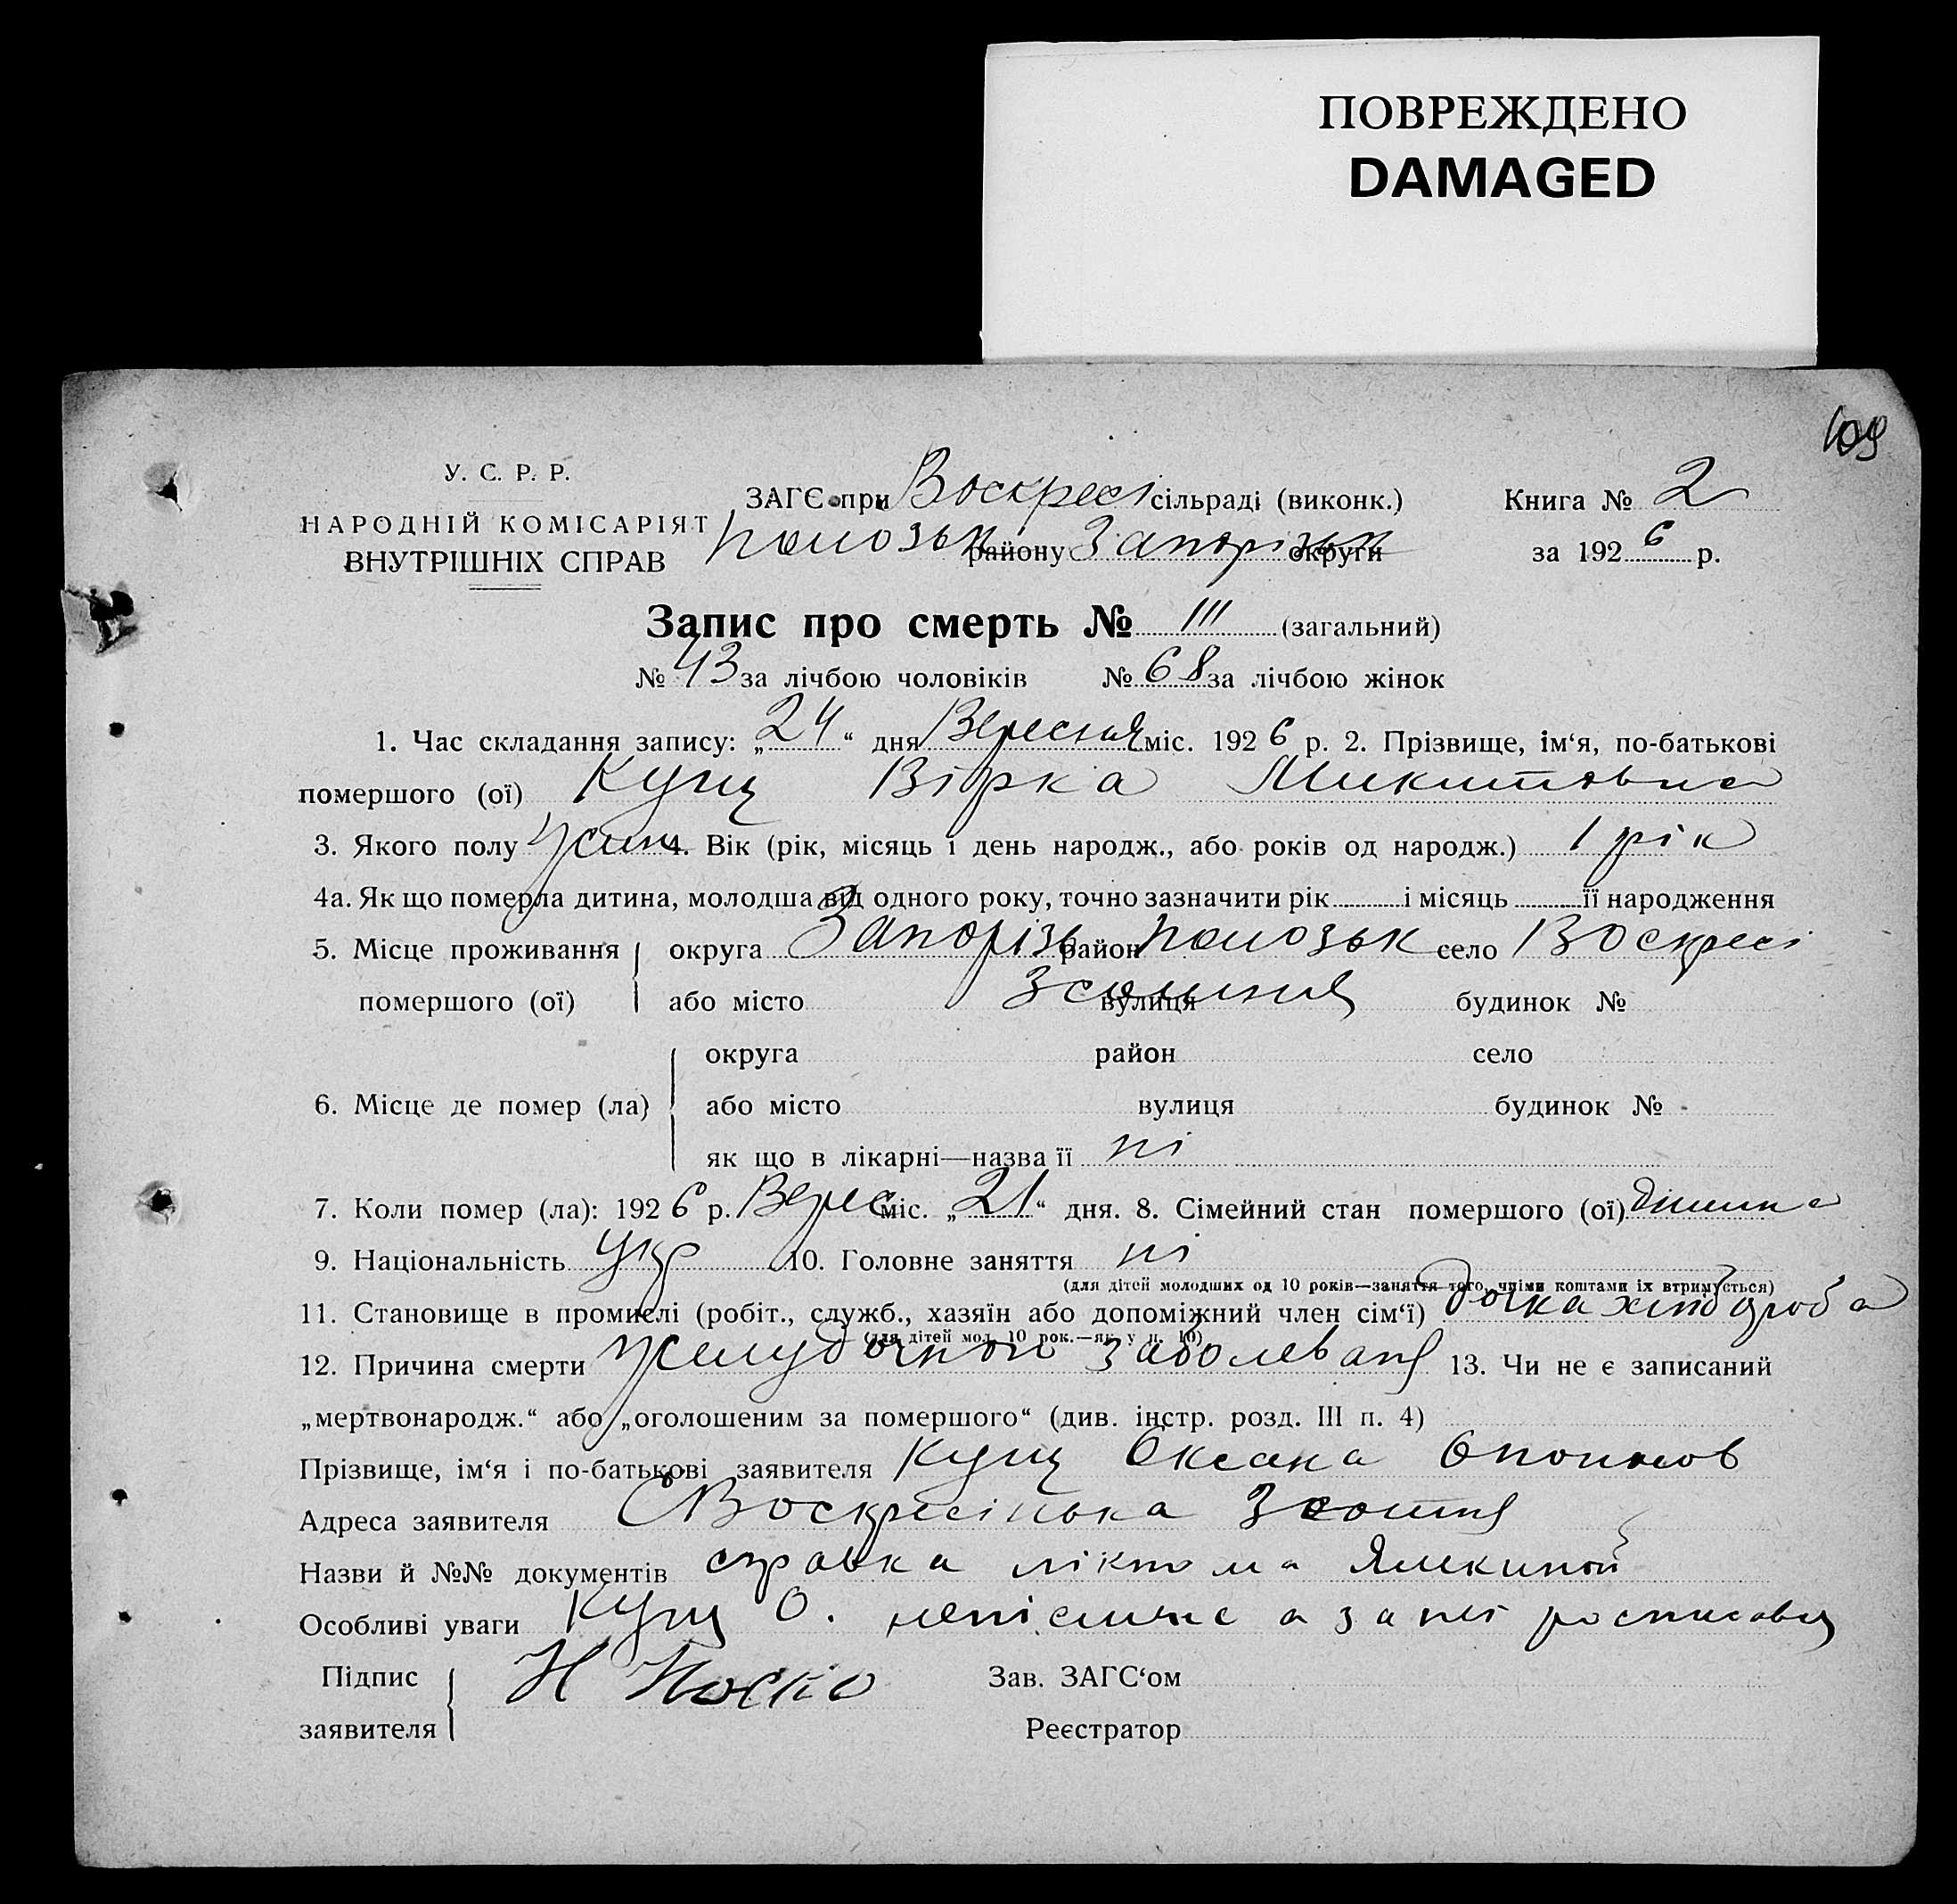 ПОВРЕЖДЕНО
DAMAGED
109
У. С. Р. Р.
НАРОДНІЙ КОМІСАРІЯТ
ВНУТРІШНІХ СПРАВ
ЗАГС при Воскресі сільраді (виконк.)
Полозьк району Запорізьк округи
Книга № 2
за 1926 р.
Запис про смерть № 111 (загальний)
№ 43 за лічбою чоловіків № 68 за лічбою жінок
1. Час складання запису: „24“ дня Вересня міс. 1926 р. 2. Прізвище, ім‘я, по-батькові
помершого (ої) Кущ Вірка Микитовна
3. Якого полу жин 4. Вік (рік, місяць і день народж., або років од народж.) 1 рік
4а. Як що померла дитина, молодша від одного року, точно зазначити рік і місяць її народження
5. Місце проживання помершого (ої) округа Запорізь район Полозьк село Воскресі
або місто 3 сотня вулиця будинок №
округа район село
6. Місце де помер (ла) або місто вулиця будинок №
як що в лікарні—назва її ні
7. Коли помер (ла): 1926 р. Верес міс. „21“ дня. 8. Сімейний стан помершого (ої) дитина
9. Національність Укр 10. Головне заняття ні
(для дітей молодших од 10 років—заняття того, чиїми коштами їх втримується)
11. Становище в промислі (робіт., служб., хазяїн або допоміжний член сім‘ї) дочка хлібороба
(для дітей мол. 10 рок.—як у п. 10)
12. Причина смерти Желудочной заболеваня 13. Чи не є записаний
„мертвонародж.“ або „оголошеним за помершого“ (див. інстр. розд. III п. 4)
Прізвище, ім‘я і по-батькові заявителя Кущ Оксана
Адреса заявителя С Воскресінька 3 сотня
Назви й №№ документів справка
Особливі уваги Кущ О. непісьмене а за неї росписався
Підпис заявителя Н Носко
Зав. ЗАГС‘ом
Реєстратор